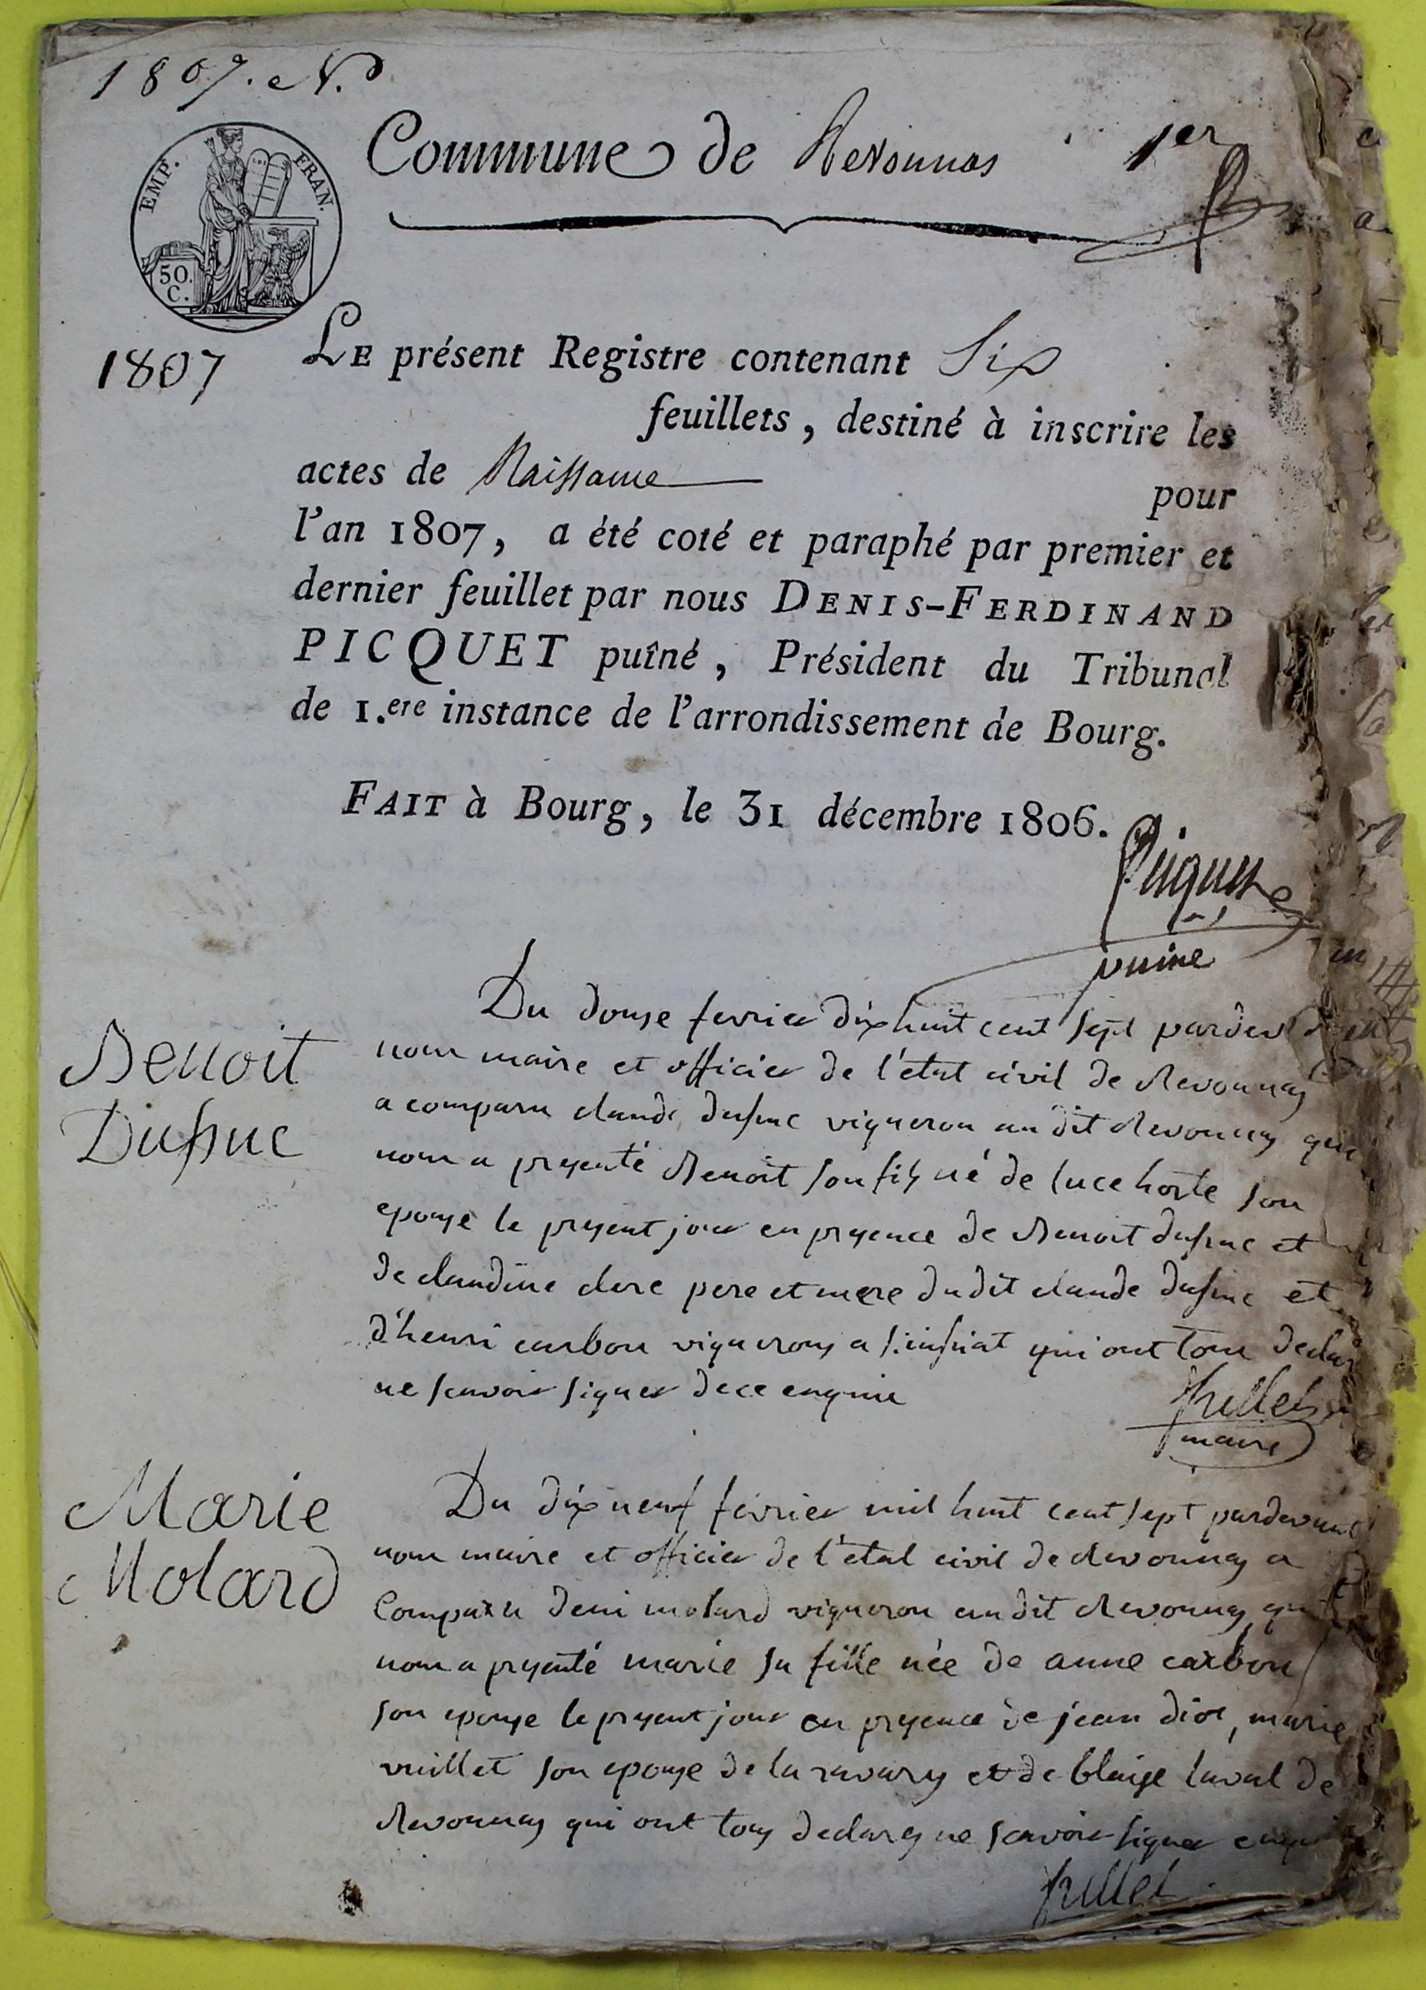 1807. N.
EMP. FRAN.
50. C.
Commune de Revonnas 1er
1807
LE présent Registre contenant Six
feuillets, destiné à inscrire les
actes de Naissance pour
l'an 1807, a été coté et paraphé par premier et
dernier feuillet par nous DENIS-FERDINAND
PICQUET puîné, Président du Tribunal
de 1.ere instance de l'arrondissement de Bourg.
FAIT à Bourg, le 31 décembre 1806.
Picquet
puiné
Benoit
Dufour
Du douze fevrier dix huit cent sept pardevant
nous maire et officier de l'état civil de Revonnas
a comparu claude vigneron au dit Revonnas qui
nous a presenté Benoit son fils né de luce son
epouse le present jour en presence de Benoit et
de claudine clerc pere et mere du dit claude et
d'henri carbon vignerons a qui ont tous declaré
ne scavoir signer de ce enquis
maire
Marie
Molard
Du dix neuf fevrier mil huit cent sept pardevant
nous maire et officier de l'état civil de Revonnas a
Comparu deni molard vigneron au dit Revonnas qui
nous a presenté marie sa fille née de anne carbon
son epouse le present jour en presence de jean marie
vuillet son epouse de la et de blaise laval de
Revonnas qui ont tous declares ne scavoir signer enquis